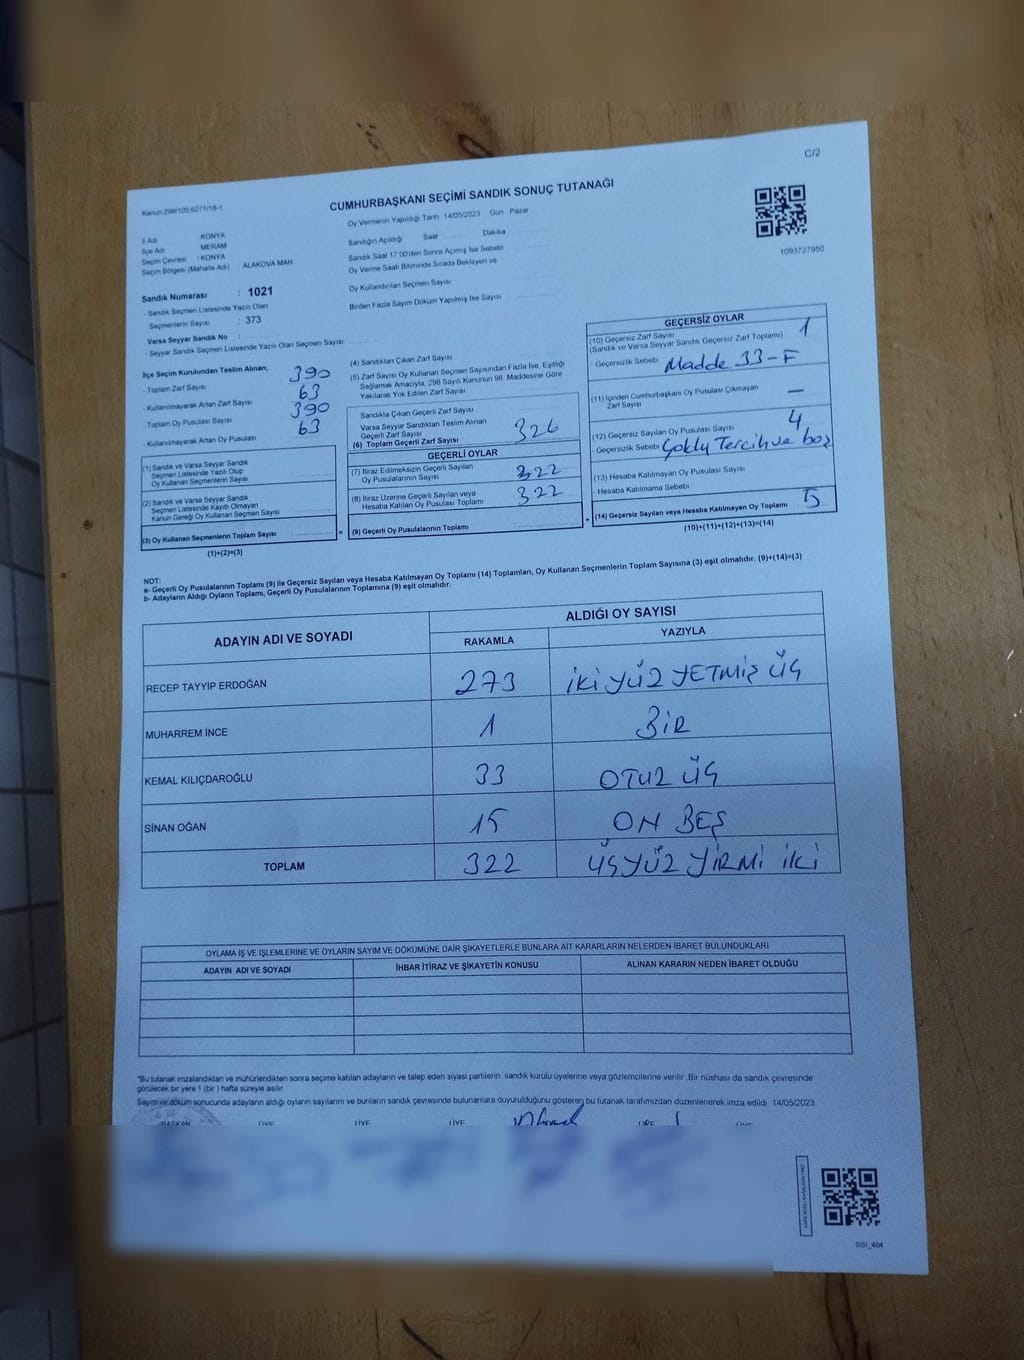 C/2
Kanun:298/105,6271/18-1
CUMHURBAŞKANI SEÇİMİ SANDIK SONUÇ TUTANAĞI
1093727950
İl Adı KONYA
İlçe Adı MERAM
Seçim Çevresi : KONYA
Seçim Bölgesi (Mahalle Adı) ALAKOVA MAH.
Sandık Numarası : 1021
- Sandık Seçmen Listesinde Yazılı Olan
Seçmenlerin Sayısı : 373
Varsa Seyyar Sandık No :
- Seyyar Sandık Seçmen Listesinde Yazılı Olan Seçmen Sayısı
Oy Vermenin Yapıldığı Tarih 14/05/2023 Gün Pazar
Sandığın Açıldığı Saat Dakika
Sandık Saat 17:00'den Sonra Açımış İse Sebebi
Oy Verme Saati Bitiminde Sırada Bekleyen ve
Oy Kullandırılan Seçmen Sayısı
Birden Fazla Sayım Döküm Yapılmış İse Sayısı
İlçe Seçim Kurulundan Teslim Alınan;
- Toplam Zarf Sayısı 390
- Kullanılmayarak Artan Zarf Sayısı 63
- Toplam Oy Pusulası Sayısı 390
- Kullanılmayarak Artan Oy Pusulası 63
(1) Sandık ve Varsa Seyyar Sandık
Seçmen Listesinde Yazılı Olup
Oy Kullanan Seçmenlerin Sayısı
(2) Sandık ve Varsa Seyyar Sandık
Seçmen Listesinde Kayıtlı Olmayan
Kanun Gereği Oy Kullanan Seçmen Sayısı
(3) Oy Kullanan Seçmenlerin Toplam Sayısı
(1)+(2)=(3)
(4) Sandıktan Çıkan Zarf Sayısı
(5) Zarf Sayısı Oy Kullanan Seçmen Sayısından Fazla İse, Eşitliği
Sağlamak Amacıyla, 298 Sayılı Kanunun 98. Maddesine Göre
Yakılarak Yok Edilen Zarf Sayısı
Sandıkta Çıkan Geçerli Zarf Sayısı
Varsa Seyyar Sandıktan Teslim Alınan
Geçerli Zarf Sayısı
(6) Toplam Geçerli Zarf Sayısı 326
GEÇERLİ OYLAR
(7) İtiraz Edilmeksizin Geçerli Sayılan
Oy Pusulalarının Sayısı 322
(8) İtiraz Üzerine Geçerli Sayılan veya
Hesaba Katılan Oy Pusulası Toplamı 322
= (9) Geçerli Oy Pusulalarının Toplamı
GEÇERSİZ OYLAR
(10) Geçersiz Zarf Sayısı 1
(Sandık ve Varsa Seyyar Sandık Geçersiz Zarf Toplamı)
- Geçersizlik Sebebi Madde 33-F
(11) İçinden Cumhurbaşkanı Oy Pusulası Çıkmayan
Zarf Sayısı —
(12) Geçersiz Sayılan Oy Pusulası Sayısı 4
- Geçersizlik Sebebi Çoklu Tercih ve boş
(13) Hesaba Katılmayan Oy Pusulası Sayısı
- Hesaba Katılmama Sebebi
+ (14) Geçersiz Sayılan veya Hesaba Katılmayan Oy Toplamı 5
(10)+(11)+(12)+(13)=(14)
NOT:
a- Geçerli Oy Pusulalarının Toplamı (9) ile Geçersiz Sayılan veya Hesaba Katılmayan Oy Toplamı (14) Toplamları, Oy Kullanan Seçmenlerin Toplam Sayısına (3) eşit olmalıdır. (9)+(14)=(3)
b- Adayların Aldığı Oyların Toplamı, Geçerli Oy Pusulalarının Toplamına (9) eşit olmalıdır.
ADAYIN ADI VE SOYADI
ALDIĞI OY SAYISI
RAKAMLA YAZIYLA
RECEP TAYYİP ERDOĞAN 273 İKİ YÜZ YETMİŞ ÜÇ
MUHARREM İNCE 1 BİR
KEMAL KILIÇDAROĞLU 33 OTUZ ÜÇ
SİNAN OĞAN 15 ON BEŞ
TOPLAM 322 ÜÇYÜZ YİRMİ İKİ
OYLAMA İŞ VE İŞLEMLERİNE VE OYLARIN SAYIM VE DÖKÜMÜNE DAİR ŞİKAYETLERLE BUNLARA AİT KARARLARIN NELERDEN İBARET BULUNDUKLARI
ADAYIN ADI VE SOYADI İHBAR İTİRAZ VE ŞİKAYETİN KONUSU ALINAN KARARIN NEDEN İBARET OLDUĞU
*Bu tutanak imzalandıktan ve mühürlendikten sonra seçime katılan adayların ve talep eden siyasi partilerin sandık kurulu üyelerine veya gözlemcilerine verilir. Bir nüshası da sandık çevresinde
görülecek bir yere 1 (bir ) hafta süreyle asılır
Sayım ve döküm sonucunda adayların aldığı oyların sayılarını ve bunların sandık çevresinde bulunanlara duyurulduğunu gösteren bu tutanak tarafımızdan düzenlenerek imza edildi 14/05/2023
BAŞKAN ÜYE ÜYE ÜYE